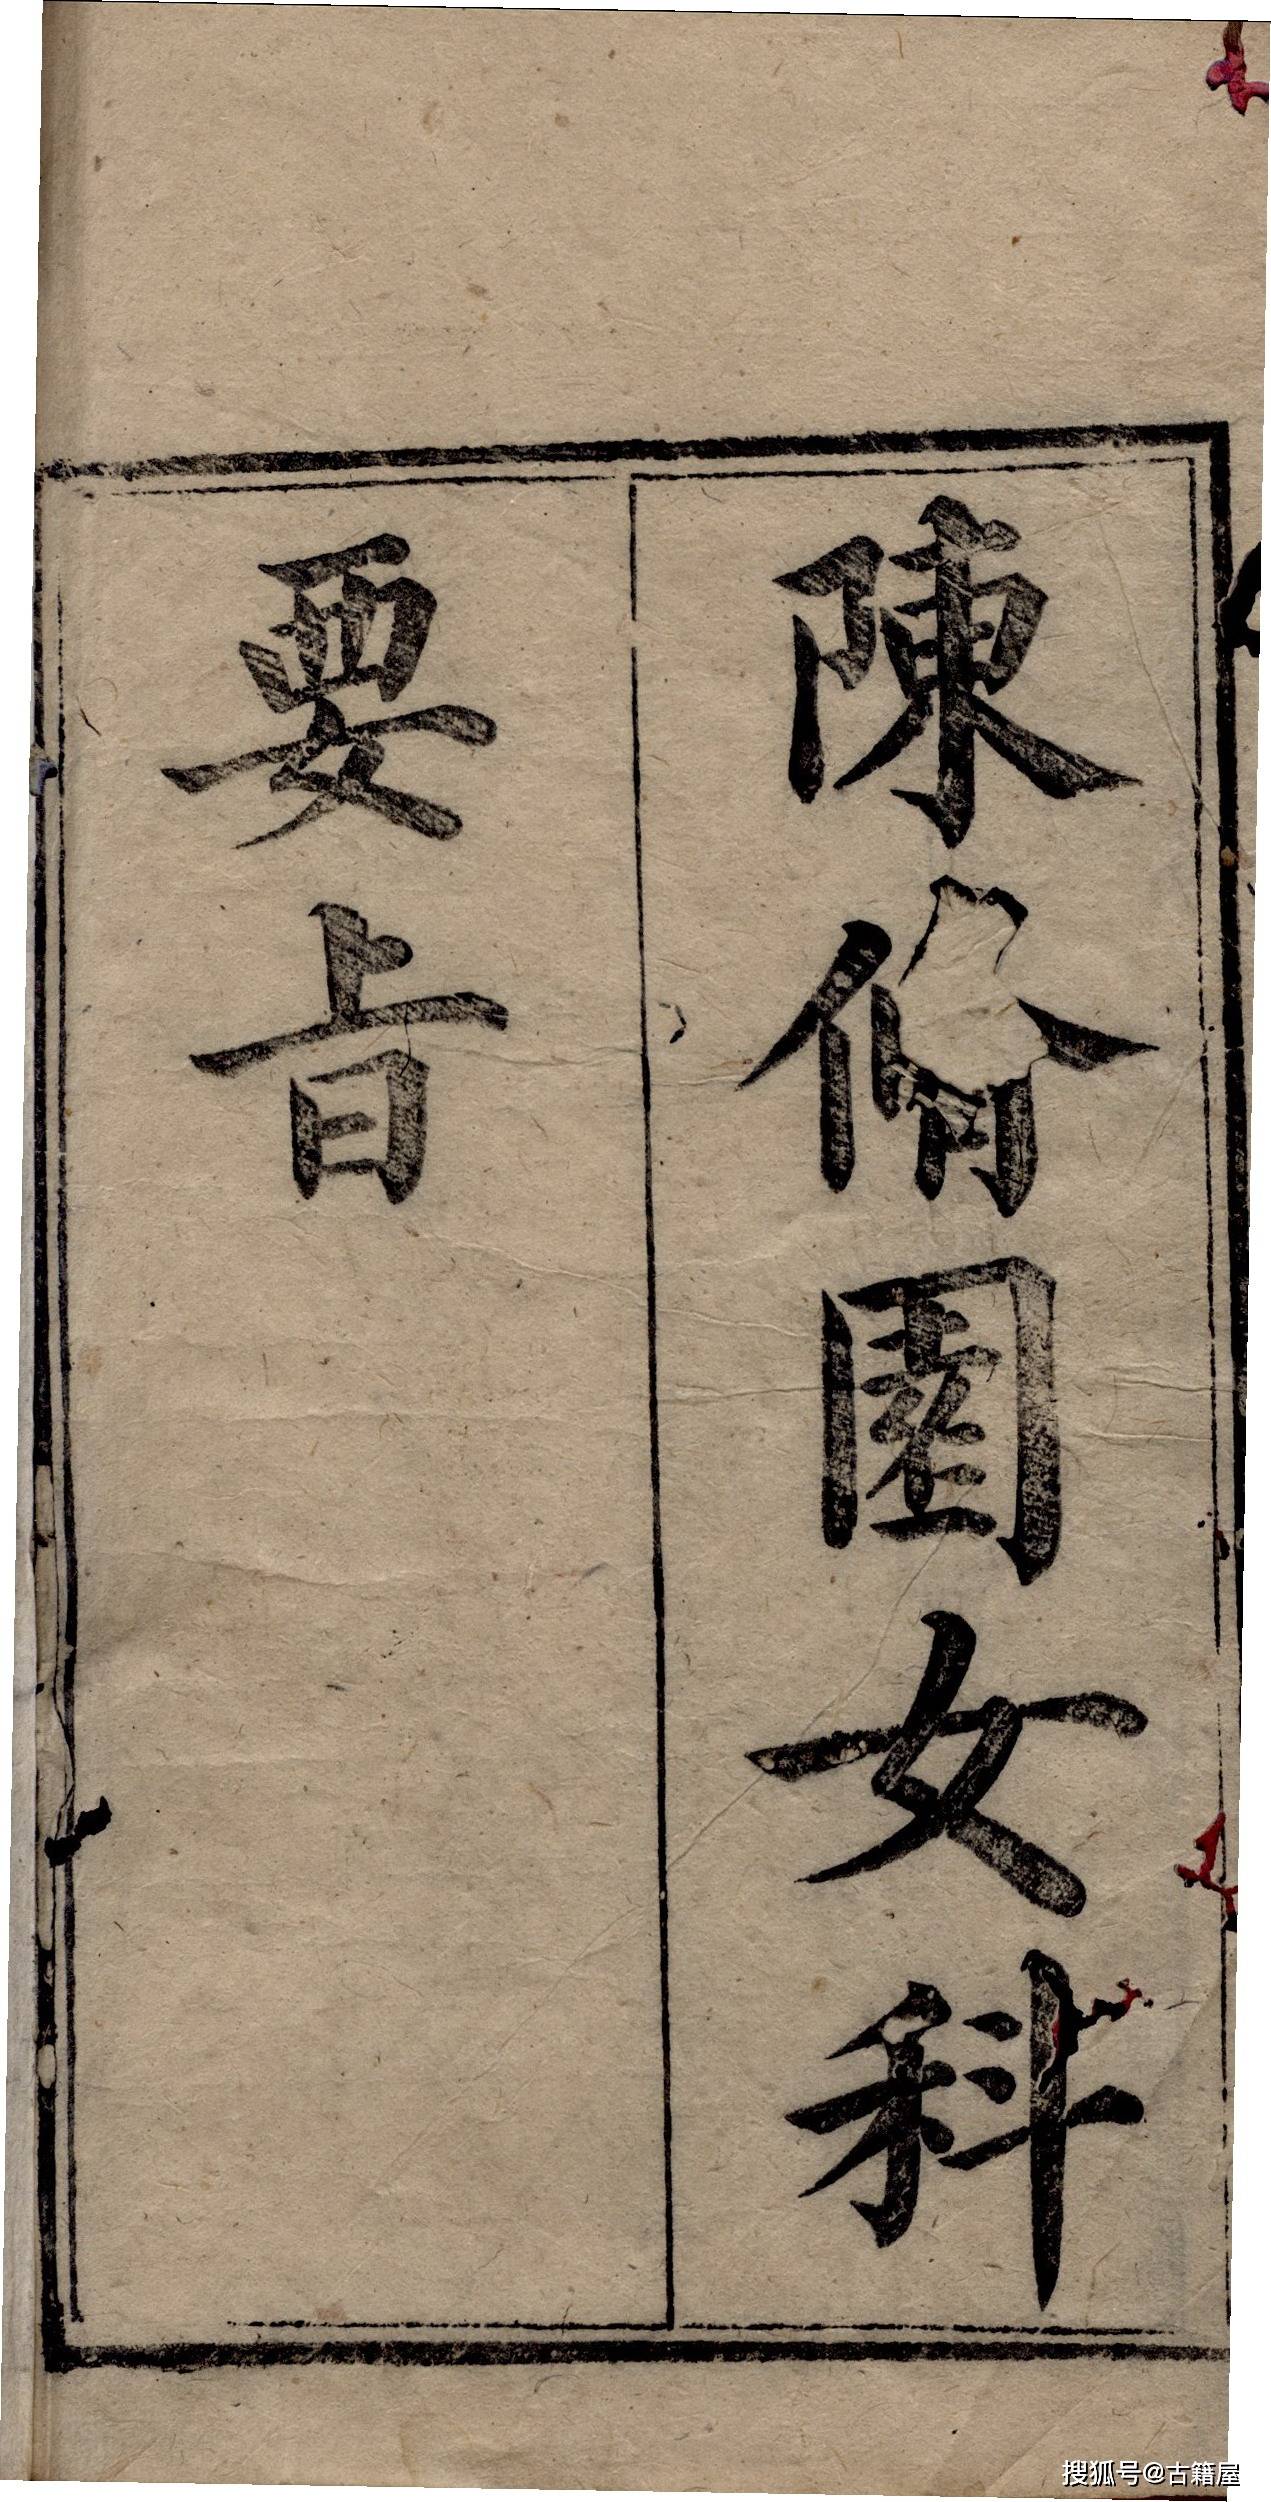 陳脩園女科
要旨
搜狐号@古籍屋